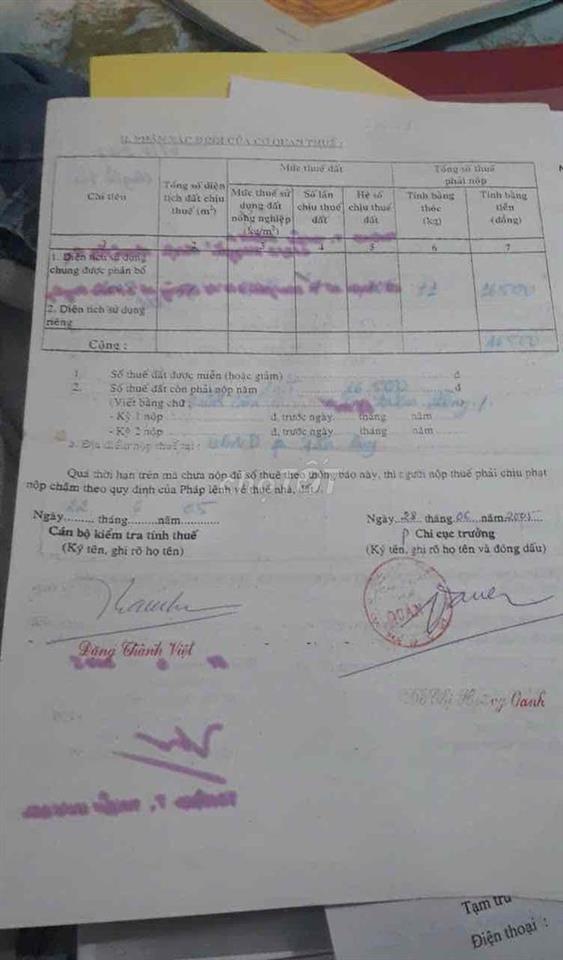 II. PHẦN XÁC ĐỊNH CỦA CƠ QUAN THUẾ :
Chỉ tiêu
Tổng số diện tích đất chịu thuế (m²)
Mức thuế đất
Tổng số thuế phải nộp
Mức thuế sử dụng đất nông nghiệp (kg/m²)
Số lần chịu thuế đất
Hệ số chịu thuế đất
Tính bằng thóc (kg)
Tính bằng tiền (đồng)
2 3 4 5 6 7
1. Diện tích sử dụng chung được phân bổ
11 16500
2. Diện tích sử dụng riêng
Cộng : 16500
1. Số thuế đất được miễn (hoặc giảm) đ
2. Số thuế đất còn phải nộp năm 16.500 đ
(Viết bằng chữ :
- Kỳ 1 nộp đ, trước ngày tháng năm
- Kỳ 2 nộp đ, trước ngày tháng năm
3. Địa điểm nộp thuế tại : UBND
Quá thời hạn trên mà chưa nộp đủ số thuế theo thông báo này, thì người nộp thuế phải chịu phạt
nộp chậm theo quy định của Pháp lệnh về thuế nhà, đất.
Ngày 22 tháng 6 năm 05
Cán bộ kiểm tra tính thuế
(Ký tên, ghi rõ họ tên)
Ngày 28 tháng 06 năm 2005
Chi cục trưởng
(Ký tên, ghi rõ họ tên và đóng dấu)
QUẬN
Đặng Thành Việt
Hoàng Oanh
Tạm trú
Điện thoại :